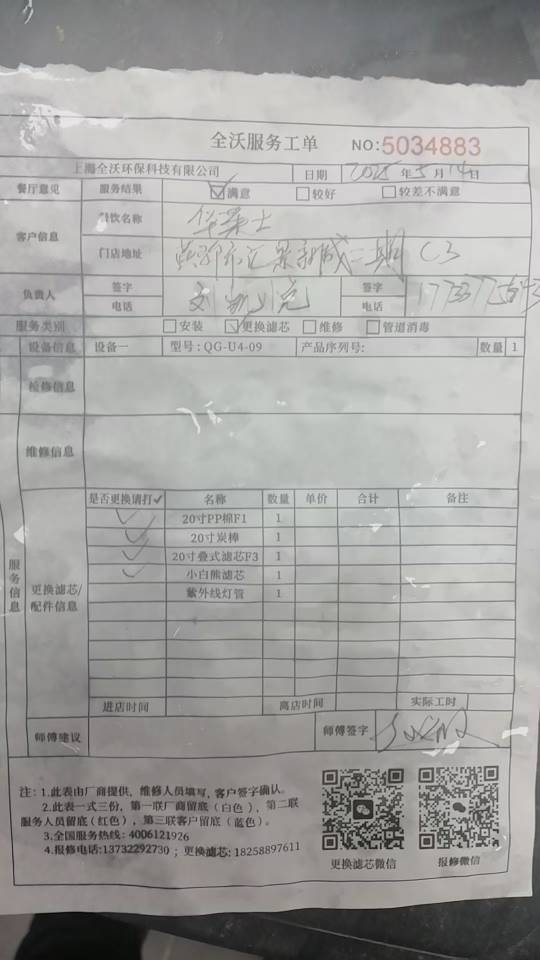 全沃服务工单 NO:5034883
上海全沃环保科技有限公司 日期 2025年5月14日
餐厅意见 服务结果 ☑满意 □较好 □较差不满意
客户信息 餐饮名称 华莱士
门店地址 二期 C3
负责人 签字 签字
电话 电话
服务类别 □安装 ☑更换滤芯 □维修 □管道消毒
设备信息 设备一 型号:QG-U4-09 产品序列号: 数量 1
检修信息
维修信息
服务信息 更换滤芯/配件信息
是否更换请打✓ 名称 数量 单价 合计 备注
✓ 20寸PP棉F1 1
✓ 20寸炭棒 1
✓ 20寸叠式滤芯F3 1
✓ 小白熊滤芯 1
紫外线灯管 1
进店时间 离店时间 实际工时
师傅建议 师傅签字
注: 1.此表由厂商提供、维修人员填写、客户签字确认。
2.此表一式三份, 第一联厂商留底(白色)、第二联
服务人员留底(红色)、第三联客户留底(蓝色)。
3.全国服务热线: 4006121926
4.报修电话:13732292730 ; 更换滤芯: 18258897611
更换滤芯微信 报修微信